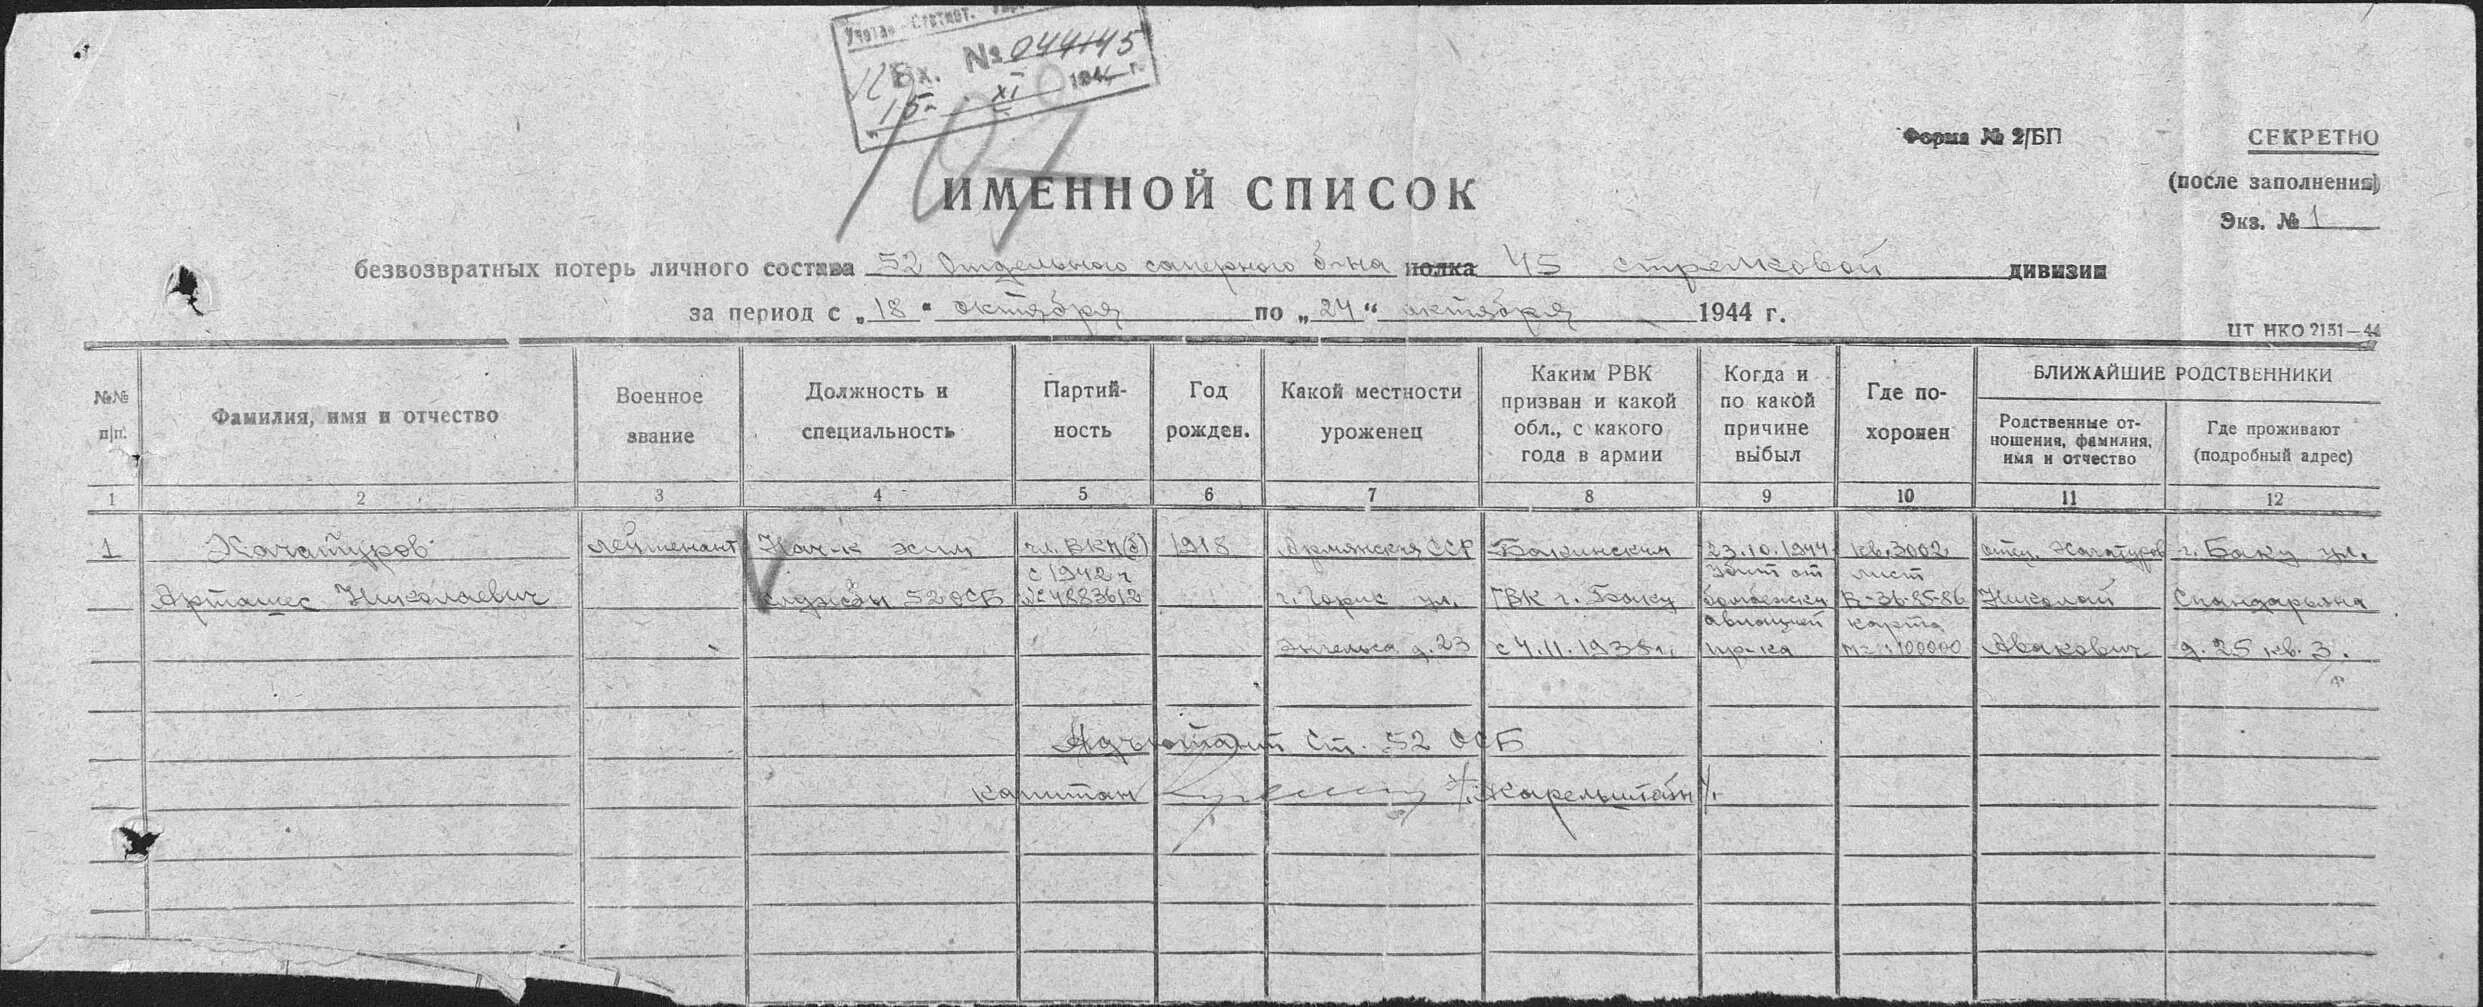 Вх. № 044145
15 XI 1944 г.
107
Форма № 2/БП
СЕКРЕТНО
(после заполнения)
Экз. № 1
ИМЕННОЙ СПИСОК
безвозвратных потерь личного состава 52 Отдельного саперного б-на полка 45 стрелковой дивизии
за период с „18“ октября по „24“ октября 1944 г.
ЦТ НКО 2151—44
№№ п|п.
Фамилия, имя и отчество
Военное звание
Должность и специальность
Партий-ность
Год рожден.
Какой местности уроженец
Каким РВК призван и какой обл., с какого года в армии
Когда и по какой причине выбыл
Где по-хоронен
БЛИЖАЙШИЕ РОДСТВЕННИКИ
Родственные от-ношения, фамилия, имя и отчество
Где проживают (подробный адрес)
1 2 3 4 5 6 7 8 9 10 11 12
1 Хачатуров лейтенант Нач-к хим чл. ВКП(б) 1918 Армянская ССР Бакинским 23.10.1944 кв. 3002 отец Хачатуров г. Баку ул.
с 1942 г убит от лист
Арташес Николаевич службы 52 ОСБ № 4883612 г. Горис ул. ГВК г. Баку бомбежки R-36-85-86 Николай Спандарьяна
авиацией карта
Энгельса д. 23 с 4.11.1938 г. пр-ка М= 1:100000 Авакович д. 25 кв. 3.
Адъютант Ст. 52 ОСБ
капитан /Карельштейн/.